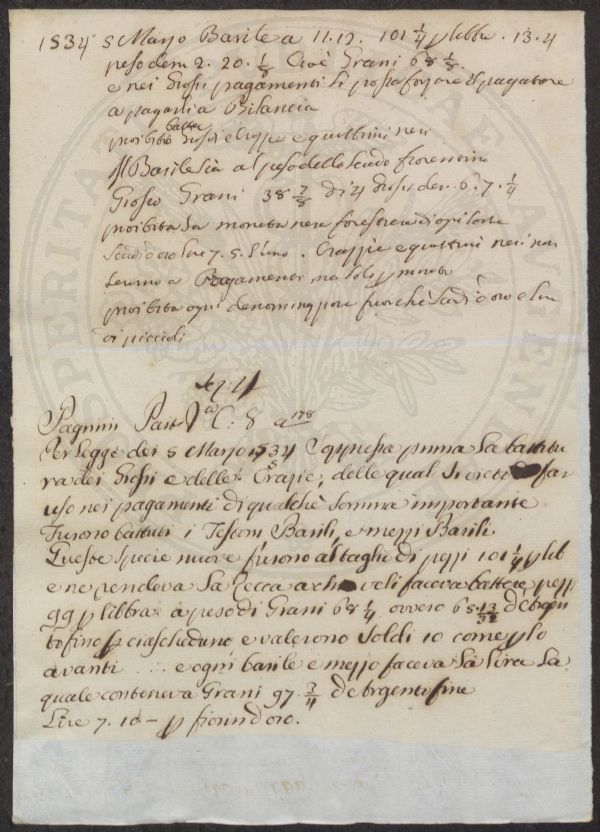 1534 5 Marzo Barile a 11.12. 101 1/4 p libbr. 13.4
peso den 2. 20. 1/8 Cioè Grani 68 1/8.
e nei Grossi pagamenti si possa forzare il pagatore
a pagarli a Bilancia
proibito batter Grossi e Crazze e quattrini neri
Il Barile sia al peso dello Scudo fiorentino
Grosso Grani 38 7/8 di 4 Grossi den. 6. 7. 1/4
proibita la moneta nera forestiera d'ogni sorte
Scudi d'oro lire 7. 5. l'uno. Crazzie e quattrini neri non
servino a Pagamenti ma solo p
proibita ogni fuorchè scudi d'oro e lire
di piccioli
Pagnini Part. C. 8 a 178
Per Legge dei 5 Marzo 1534 prima la battitu
ra dei Grossi e delle Crazie, delle quali si vietò far
uso nei pagamenti di qualche somma importante
Furono battuti i Testoni Barili, e mezzi Barili
Queste specie nuove furono al taglio di pezzi 101 1/4 p lib
e ne rendeva la Zecca a chi ve li faceva battere pezzi
99 p libbra a peso di Grani 68 1/4 ovvero 65.13/32 d'Argen
to fino p ciascheduno e valerono Soldi 10 come p lo
avanti ... e ogni barile e mezzo faceva la Lira la
quale conteneva Grani 97 3/4 d'Argento fine
Lire 7. 10 - p fiorin d'oro.